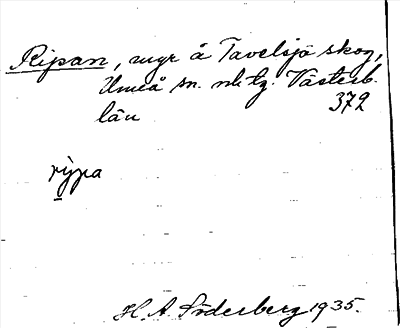 Ripan, myr å Tavelsjö skog,
Umeå sn. Västerb.
län 372
rìpa
H. A. Söderberg 1935.